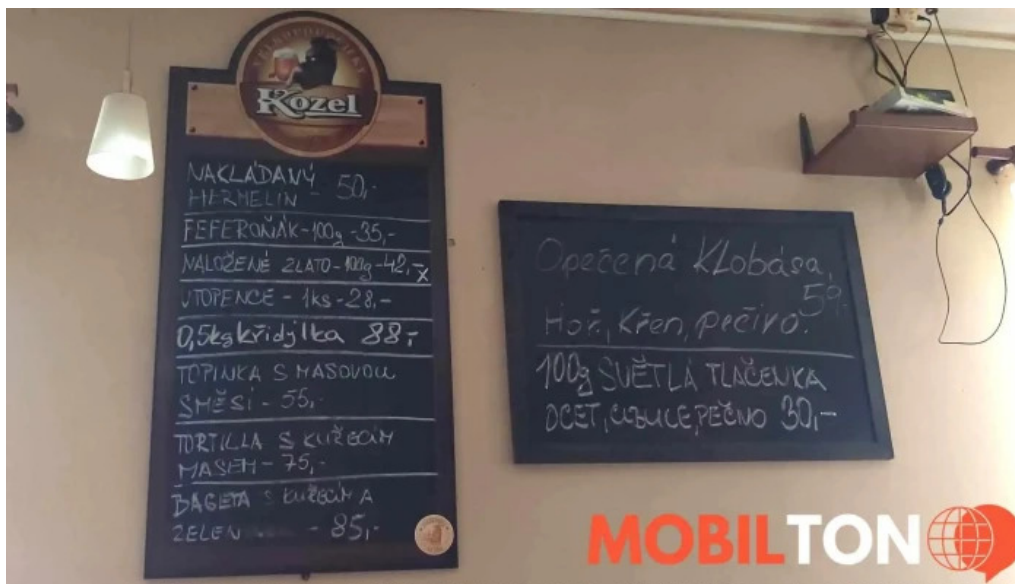 VELKOPOPOVICKÝ
Kozel
NAKLÁDANÝ
HERMELIN - 50,-
FEFEROŇÁK-100g-35,-
NALOŽENÉ ZLATO-100g-42,-x
UTOPENCE - 1ks-28,-
0,5kg křidýlka 88,-
TOPINKA S MASOVOU
SMĚSÍ - 55,-
TORTILLA S KUŘECÍM
MASEM - 75,-
BAGETA S KUŘECÍM A
ZELEN - 85,-
Opečená Klobása,
59,-
Hoř., Křen, pečivo.
100g SVĚTLÁ TLAČENKA
OCET, CIBULE, PEČIVO 30,-
MOBILTON